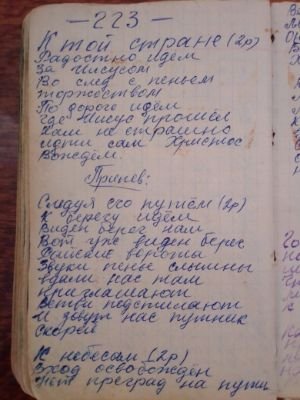 — 223 —
К той стране (2р)
Радостно идём
За Иисусом
Во след с пеньем
торжеством
По дороге идём
где Иисус прошёл
Нам не страшно
идти сам Христос
Вождём.
Припев:
Следуя его путём (2р)
К берегу идём
Виден берег нам
Вот уже виден берег
Райские вороты
Звуки пенье слышны
вдали нас там
приглашают
Ветви подстилают
И звут нас путник
скорей
К небесам (2р)
Вход освобождён
Нет преград на пути